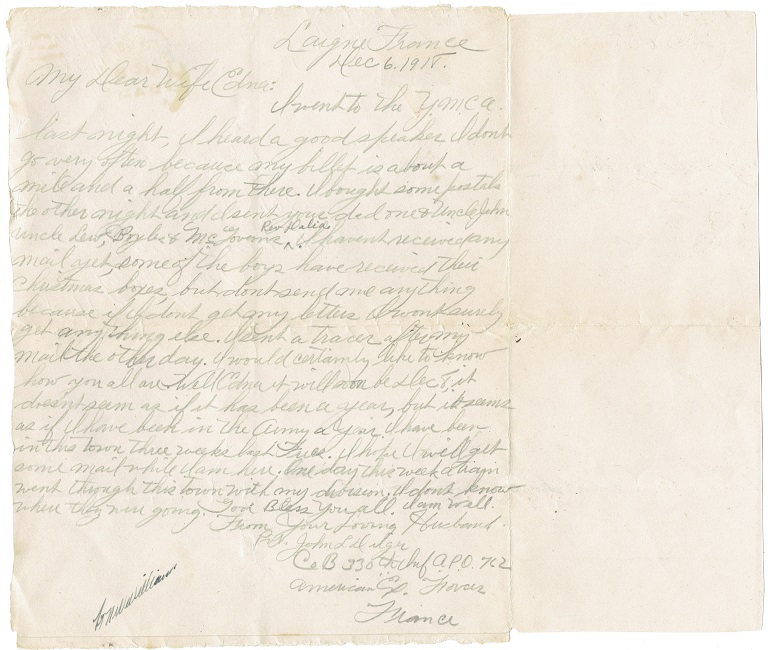 Laigne France
Dec 6. 1918.
My Dear Wife Edna:
I went to the Y.M.C.A.
last night, I heard a good speaker I dont
go very often because my billet is about a
mile and a half from there. I bought some postals
the other night and I sent your dad one & Uncle John
uncle Lew, & McGoverns Rev I havent received any
mail yet, some of the boys have received their
Christmas boxes, but dont send me anything
because if I dont get my letters I wont surely
get anything else. I sent a tracer after my
mail the other day. I would certainly like to know
how you all are. Well Edna it will soon be Dec 8, it
doesnt seem as if it has been a year, but it seems
as if I have been in the Army a year. I have been
in this town three weeks last Tues. I hope I will get
some mail while I am here. One day this week a train
went through this town with my division. I dont know
where they were going. Bless you all. I am well.
From Your Loving Husband.
John L Dilger
Co B 330th Inf A.P.O. 762
American Ex. Forces
France
Williams